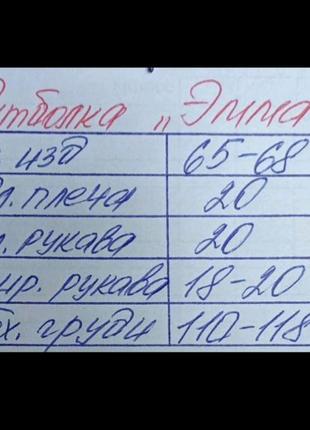 утболка „Эмма
изд 65-68
л. плеча 20
л. рукава 20
ир. рукава 18-20
х. груди 110-118